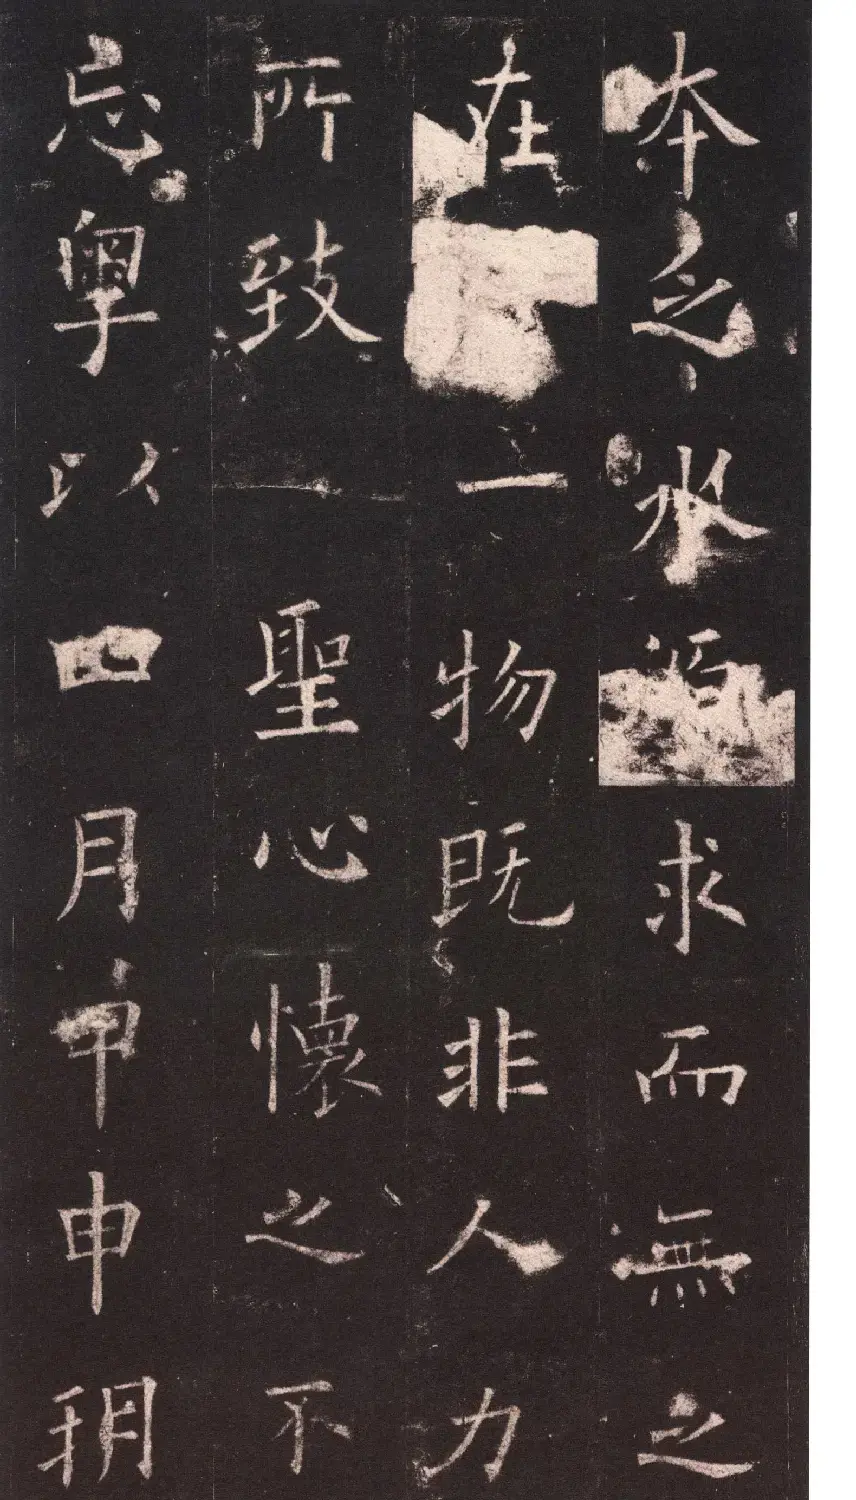 本之水源求而無之
在一物既非人力
所致聖心懷之不
忘粤以四月甲申朔